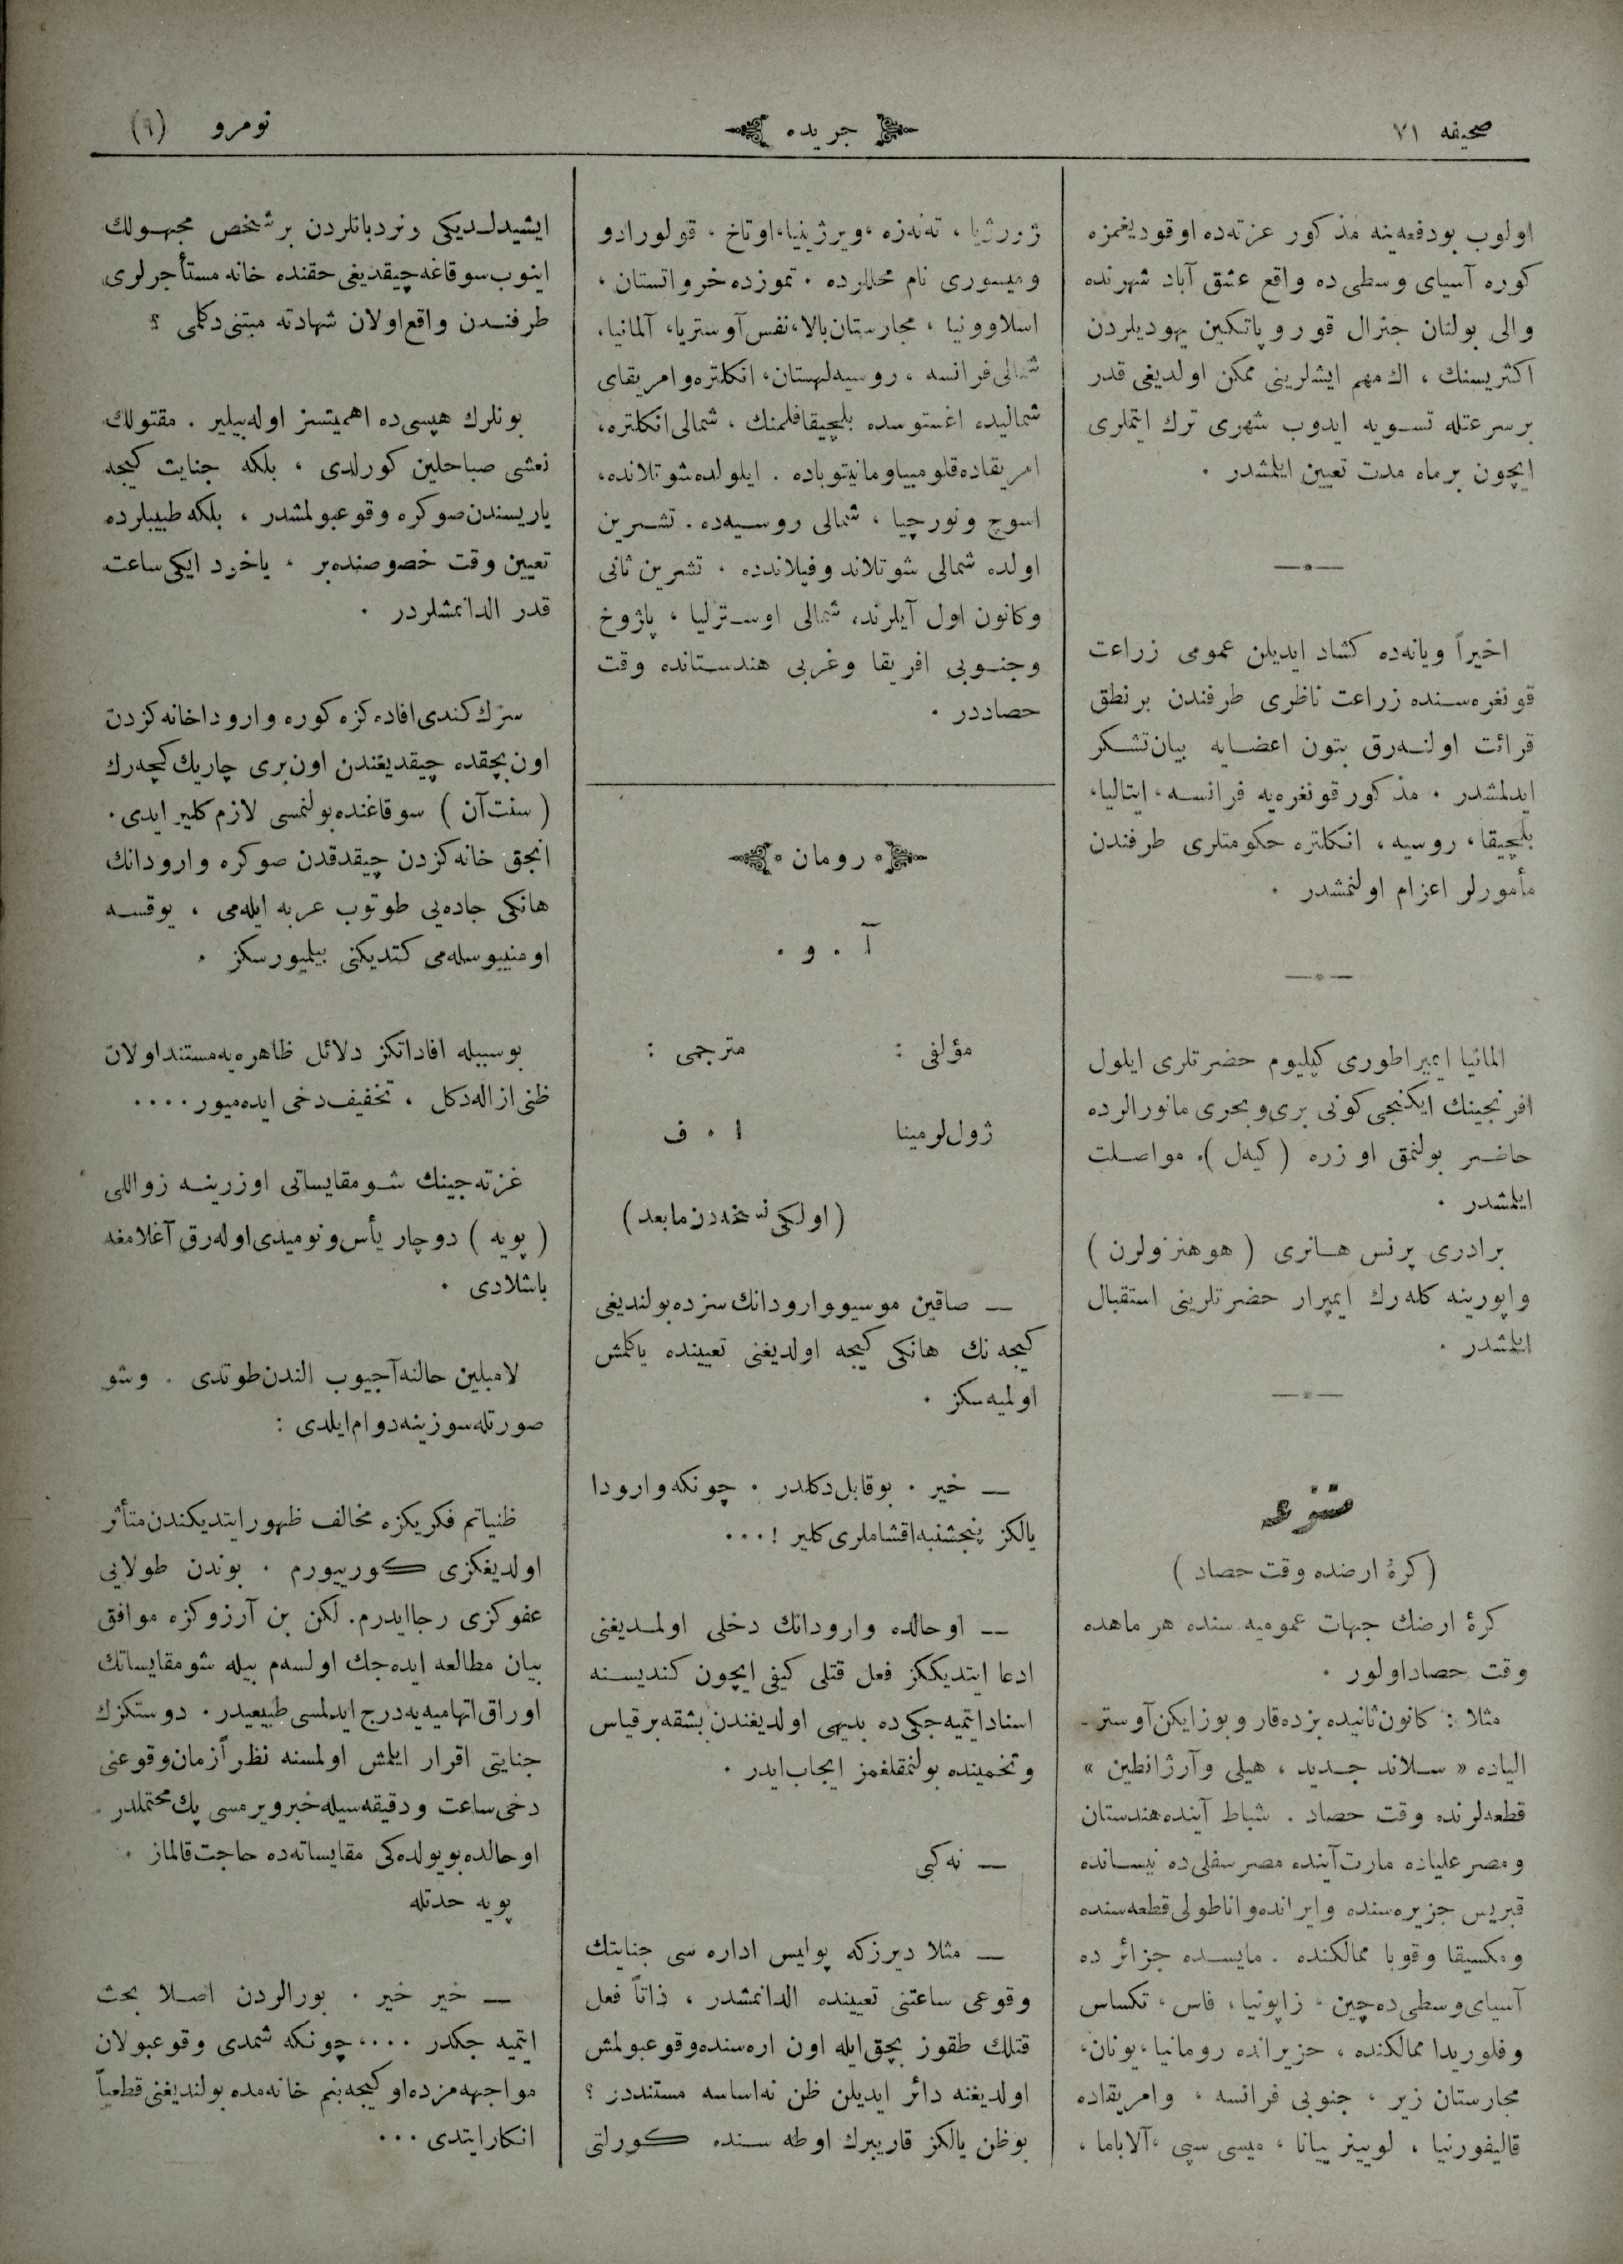 صحیفه ٧١
جریده
نومرو (٩)
اولوب بودفعه‌ینه مذکور غزته‌ده اوقودیغمزه
کوره آسیای وسطی ده واقع عشق آباد شهرنده
والی بولنان جنرال قوروپاتکین یهودیلردن
اکثریسنك ، اك مهم ایشلرینی ممکن اولدیغی قدر
بر سرعتله تسویه ایدوب شهری ترك ایتملری
ایچون بر ماه مدت تعیین ایلمشدر .
اخیراً ویانه‌ده کشاد ایدیلن عمومی زراعت
قونغره‌سنده زراعت ناظری طرفندن بر نطق
قرائت اولنه‌رق بتون اعضایه بیان تشکر
ایدلمشدر . مذکور قونغره‌یه فرانسه ، ایتالیا،
بلچیقا ، روسیه ، انکلتره حکومتلری طرفندن
مأمورلر اعزام اولنمشدر .
المانیا ایمپراطوری کیلیوم حضرتلری ایلول
افرنجینك ایکنجی کونی بری و بحری مانورالرده
حاضر بولنمق اوزره ( کیه‌ل ) . مواصلت
ایلمشدر .
برادری پرنس هانری ( هوهنزولرن )
واپورینه کله‌رك ایمپرار حضرتلرینی استقبال
ایلمشدر .
متنوعه
( کرۀ ارضده وقت حصاد )
کرۀ ارضك جهات عمومیه سنده هر ماهده
وقت حصاد اولور .
مثلا : کانون ثانیده بزده قار و بوز ایکن آوستر ـ
الیاده « سلاند جدید ، هیلی و آرژانطین »
قطعه‌لرنده وقت حصاد . شباط آینده هندستان
و مصر علیاده مارت آینده مصر سفلی ده نیسانده
قبریس جزیره‌سنده و ایرانده و اناطولی قطعه‌سنده
و مکسیقا و قوبا ممالکنده . مایسده جزائر ده
آسیای وسطی ده چین ، ژاپونیا ، فاس ، تکساس
و فلوریدا ممالکنده ، حزیرانده رومانیا ، یونان،
مجارستان زیر ، جنوبی فرانسه ، و امریقاده
قالیفورنیا ، لوییزییانا ، میسی سپی ، آلاباما ،
ژورژیا ، ته‌نه‌زه ، ویرژینیا ، اوتاخ ، قولورادو
و میسوری نام محللرده . تموزده خرواتستان ،
اسلاوونیا ، مجارستان بالا ، نفس آوستریا ، آلمانیا،
شمالی فرانسه ، روسیه لهستان ، انکلتره و امریقای
شمالیده، اغستوسده بلچیقا فلمنك ، شمالی انکلتره،
امریقاده قلومبیا و مانیتوباده . ایلولده شوتلانده،
اسوج و نورچیا ، شمالی روسیه‌ده . تشرین
اولده شمالی شوتلاند و فیلاندده . تشرین ثانی
و کانون اول آیلرنده شمالی اوسترلیا ، پاژوخ
و جنوبی افریقا و غربی هندستانده وقت
حصاددر .
رومان
آ . و .
مؤلفی : مترجمی :
ژول لرمینا ا . ف
( اولکی نسخه‌دن مابعد )
— صاقین موسیو وارودانك سزده بولندیغی
کیجه نك هانکی کیجه اولدیغنی تعیینده یاکلمش
اولمیه سکز .
— خیر . بو قابل دکلدر . چونکه وارودا
یالکز پنجشنبه اقشاملری کلیر ! . . .
— او حالده وارودانك دخلی اولمدیغنی
ادعا ایتدیککز فعل قتلی کیفی ایچون کندیسنه
اسناد ایتمیه جکی ده بدیهی اولدیغندن بشقه بر قیاس
و تخمینده بولنمقلغمز ایجاب ایدر .
— نه کبی
— مثلا دیرزکه پولیس اداره سی جنایتك
وقوعی ساعتنی تعیینده الدانمشدر ، ذاتاً فعل
قتلك طقوز بچق ایله اون اره‌سنده وقوعبولمش
اولدیغنه دائر ایدیلن ظن نه اساسه مستنددر ؟
بوظن یالکز قاریبرك اوطه سنده کورلتی
ایشیدلدیکی و نردبانلردن بر شخص مجهولك
اینوب سوقاغه چیقدیغی حقنده خانه مستأجرلری
طرفندن واقع اولان شهادته مبتنی دکلمی ؟
بونلرك هپسی ده اهمیتسز اوله‌بیلیر . مقتولك
نعشی صباحلین کورلدی ، بلکه جنایت کیجه
یاریسندن صوکره وقوعبولمشدر ، بلکه طبیبلرده
تعیین وقت خصوصنده بر ، یاخود ایکی ساعت
قدر الدانمشلردر .
سزك کندی افاده کزه کوره وارودا خانه کزدن
اون بچقده چیقدیغندن اون بری چاریك کچه‌رك
( سنت آن ) سوقاغنده بولنمسی لازم کلیر ایدی .
انجق خانه کزدن چیقدقدن صوکره وارودانك
هانکی جاده‌یی طوتوب عربه ایله‌می ، یوقسه
اومنیبوسله‌می کتدیکنی بیلمیورسکز .
بو سببله افاداتکز دلائل ظاهره‌یه مستند اولان
ظنی ازاله دکل ، تخفیف دخی ایده‌میور . . . .
غزته جینك شو مقایساتی اوزرینه زواللی
( پویه ) دوچار یأس و نومیدی اوله‌رق آغلامغه
باشلادی .
لامبلین حالنه آجیوب الندن طوتدی . و شو
صورتله سوزینه دوام ایلدی :
ظنیاتم فکریکزه مخالف ظهور ایتدیکندن متأثر
اولدیغکزی کورییورم . بوندن طولایی
عفوکزی رجا ایدرم . لکن بن آرزوکزه موافق
بیان مطالعه ایده‌جك اولسه‌م بیله شو مقایساتك
اوراق اتهامیه‌یه درج ایدلمسی طبیعیدر . دوستکزك
جنایتی اقرار ایلمش اولمسنه نظراً زمان وقوعنی
دخی ساعت و دقیقه‌سیله خبر ویرمسی پك محتملدر .
او حالده بو یولده‌کی مقایساته‌ده حاجت قالماز .
پویه حدتله
— خیر خیر . بورالردن اصلا بحث
ایتمیه جکدر . . . ، چونکه شمدی وقوعبولان
مواجهه‌مزده او کیجه بنم خانه‌مده بولندیغنی قطعیاً
انکار ایتدی . . .